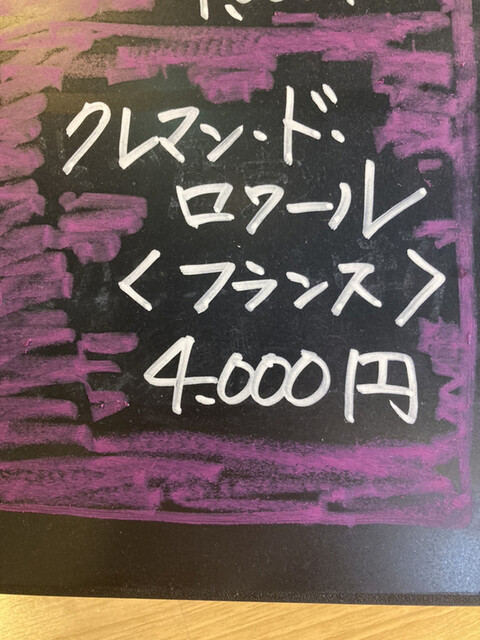 クレマン・ド・
ロワール
<フランス>
4.000円